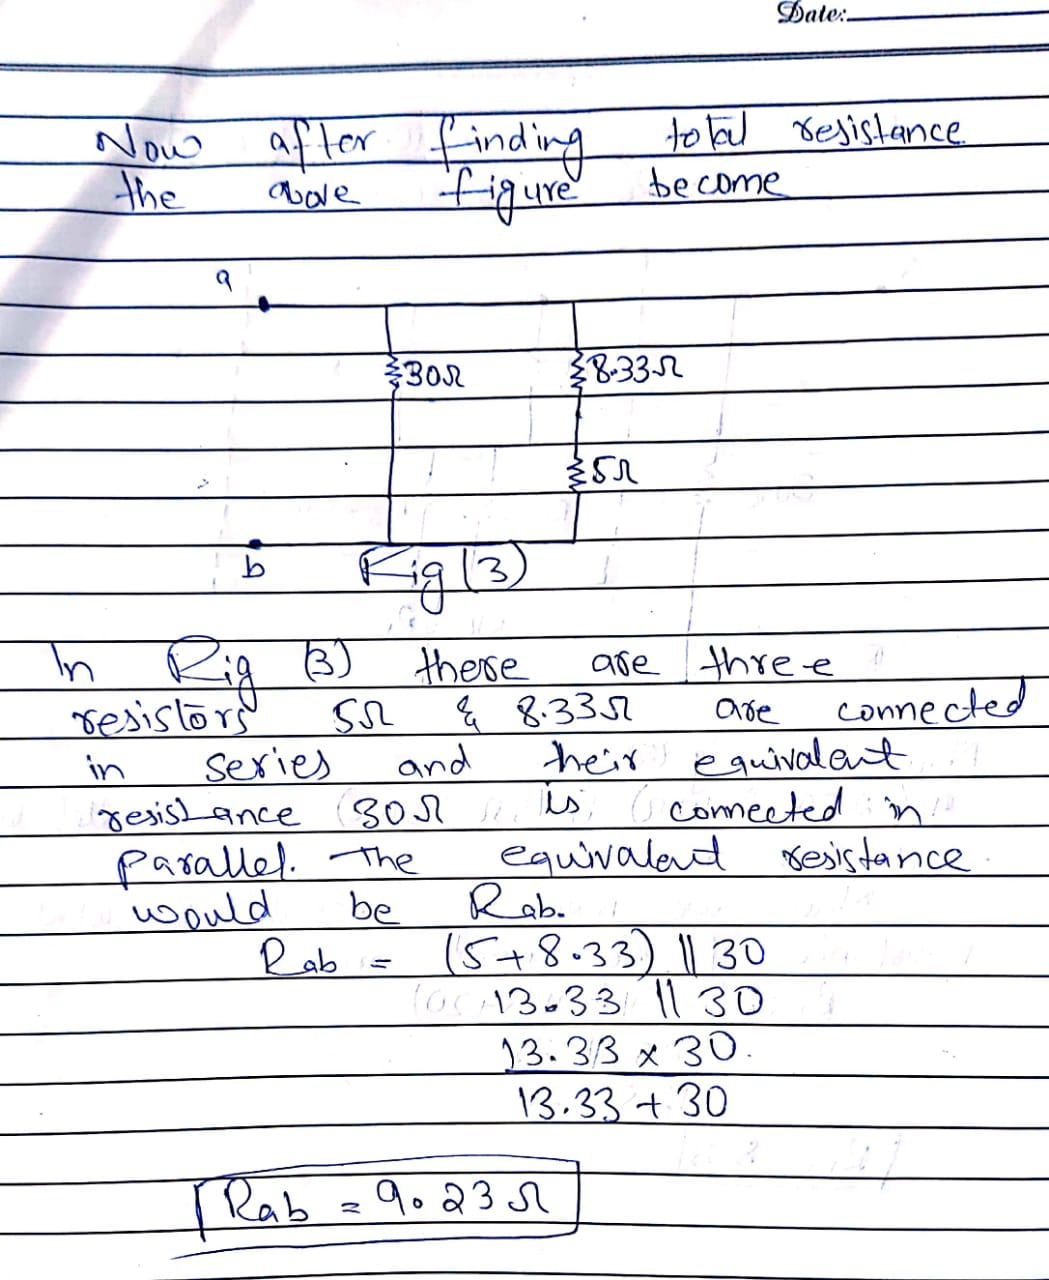 Date:
Now after finding total resistance
the above figure become
a
30Ω
8.33Ω
5Ω
b
Fig (3)
In Fig (3) there are three
resistors 5Ω & 8.33Ω are connected
in series and their equivalent
resistance 30Ω is connected in
parallel. The equivalent resistance
would be Rab.
Rab = (5+8.33) || 30
13.33 || 30
13.33 x 30.
13.33 + 30
Rab = 9.23Ω